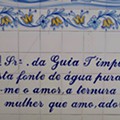 Srª. da Guia T'impl
sta fonte de água pura
-me o amor, a ternura
mulher que amo, ado